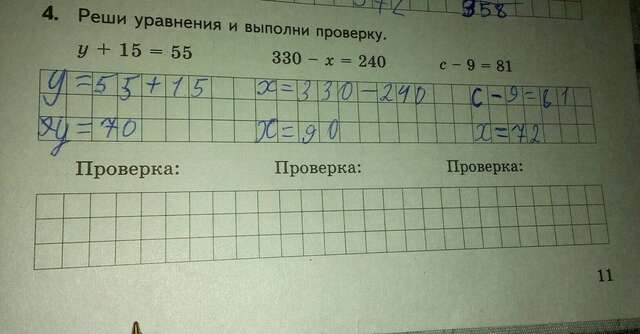 358
4. Реши уравнения и выполни проверку.
y + 15 = 55 330 − x = 240 c − 9 = 81
y=55+15 x=330−240 c−9=61
y=70 x=90 x=72
Проверка: Проверка: Проверка:
11